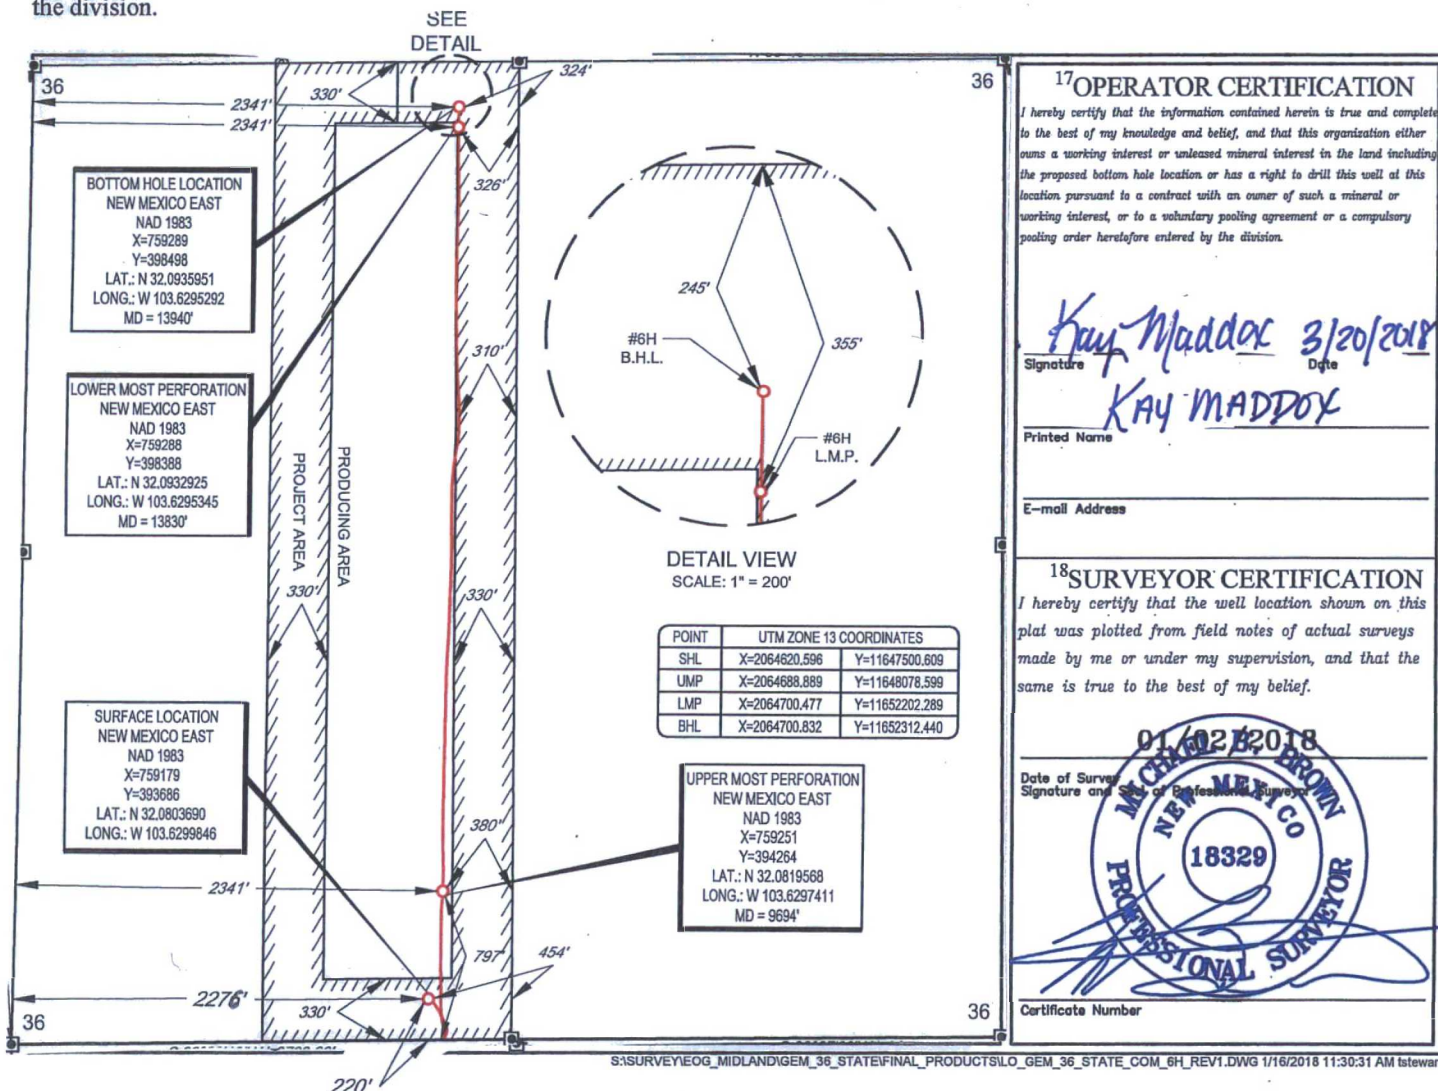 the division.
SEE
DETAIL
36
36
324'
330'
2341'
2341'
326'
BOTTOM HOLE LOCATION
NEW MEXICO EAST
NAD 1983
X=759289
Y=398498
LAT.: N 32.0935951
LONG.: W 103.6295292
MD = 13940'
LOWER MOST PERFORATION
NEW MEXICO EAST
NAD 1983
X=759288
Y=398388
LAT.: N 32.0932925
LONG.: W 103.6295345
MD = 13830'
310'
PROJECT AREA
PRODUCING AREA
330'
330'
245'
355'
#6H
B.H.L.
#6H
L.M.P.
DETAIL VIEW
SCALE: 1" = 200'
POINT UTM ZONE 13 COORDINATES
SHL X=2064620.596 Y=11647500.609
UMP X=2064688.889 Y=11648078.599
LMP X=2064700.477 Y=11652202.289
BHL X=2064700.832 Y=11652312.440
SURFACE LOCATION
NEW MEXICO EAST
NAD 1983
X=759179
Y=393686
LAT.: N 32.0803690
LONG.: W 103.6299846
UPPER MOST PERFORATION
NEW MEXICO EAST
NAD 1983
X=759251
Y=394264
LAT.: N 32.0819568
LONG.: W 103.6297411
MD = 9694'
380'
2341'
797'
454'
2276'
330'
36
36
220'
17 OPERATOR CERTIFICATION
I hereby certify that the information contained herein is true and complete
to the best of my knowledge and belief, and that this organization either
owns a working interest or unleased mineral interest in the land including
the proposed bottom hole location or has a right to drill this well at this
location pursuant to a contract with an owner of such a mineral or
working interest, or to a voluntary pooling agreement or a compulsory
pooling order heretofore entered by the division.
Kay Maddox 3/20/2018
Signature Date
KAY MADDOX
Printed Name
E-mail Address
18 SURVEYOR CERTIFICATION
I hereby certify that the well location shown on this
plat was plotted from field notes of actual surveys
made by me or under my supervision, and that the
same is true to the best of my belief.
01/02/2018
Date of Survey
Signature and Seal of Professional Surveyor
MICHAEL B. BROWN
NEW MEXICO
18329
PROFESSIONAL SURVEYOR
Certificate Number
S:\SURVEY\EOG_MIDLAND\GEM_36_STATE\FINAL_PRODUCTS\LO_GEM_36_STATE_COM_6H_REV1.DWG 1/16/2018 11:30:31 AM tstewar